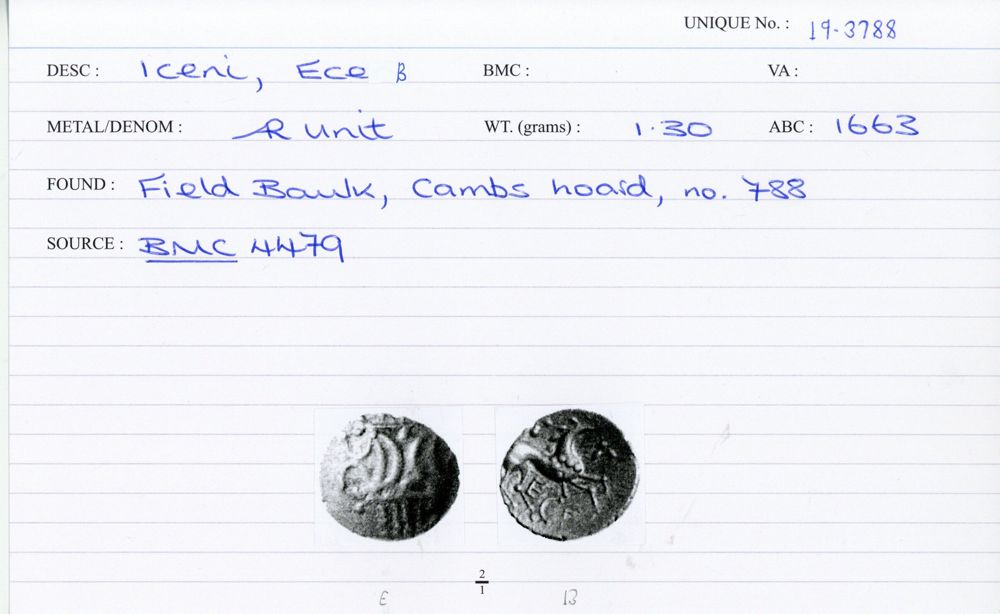 UNIQUE No. : 19-3788
DESC : Iceni, Ece B BMC : VA :
METAL/DENOM : AR Unit WT. (grams) : 1.30 ABC : 1663
FOUND : Field Baulk, Cambs hoard, no. 788
SOURCE : BMC 4479
ECE
2
1
E B